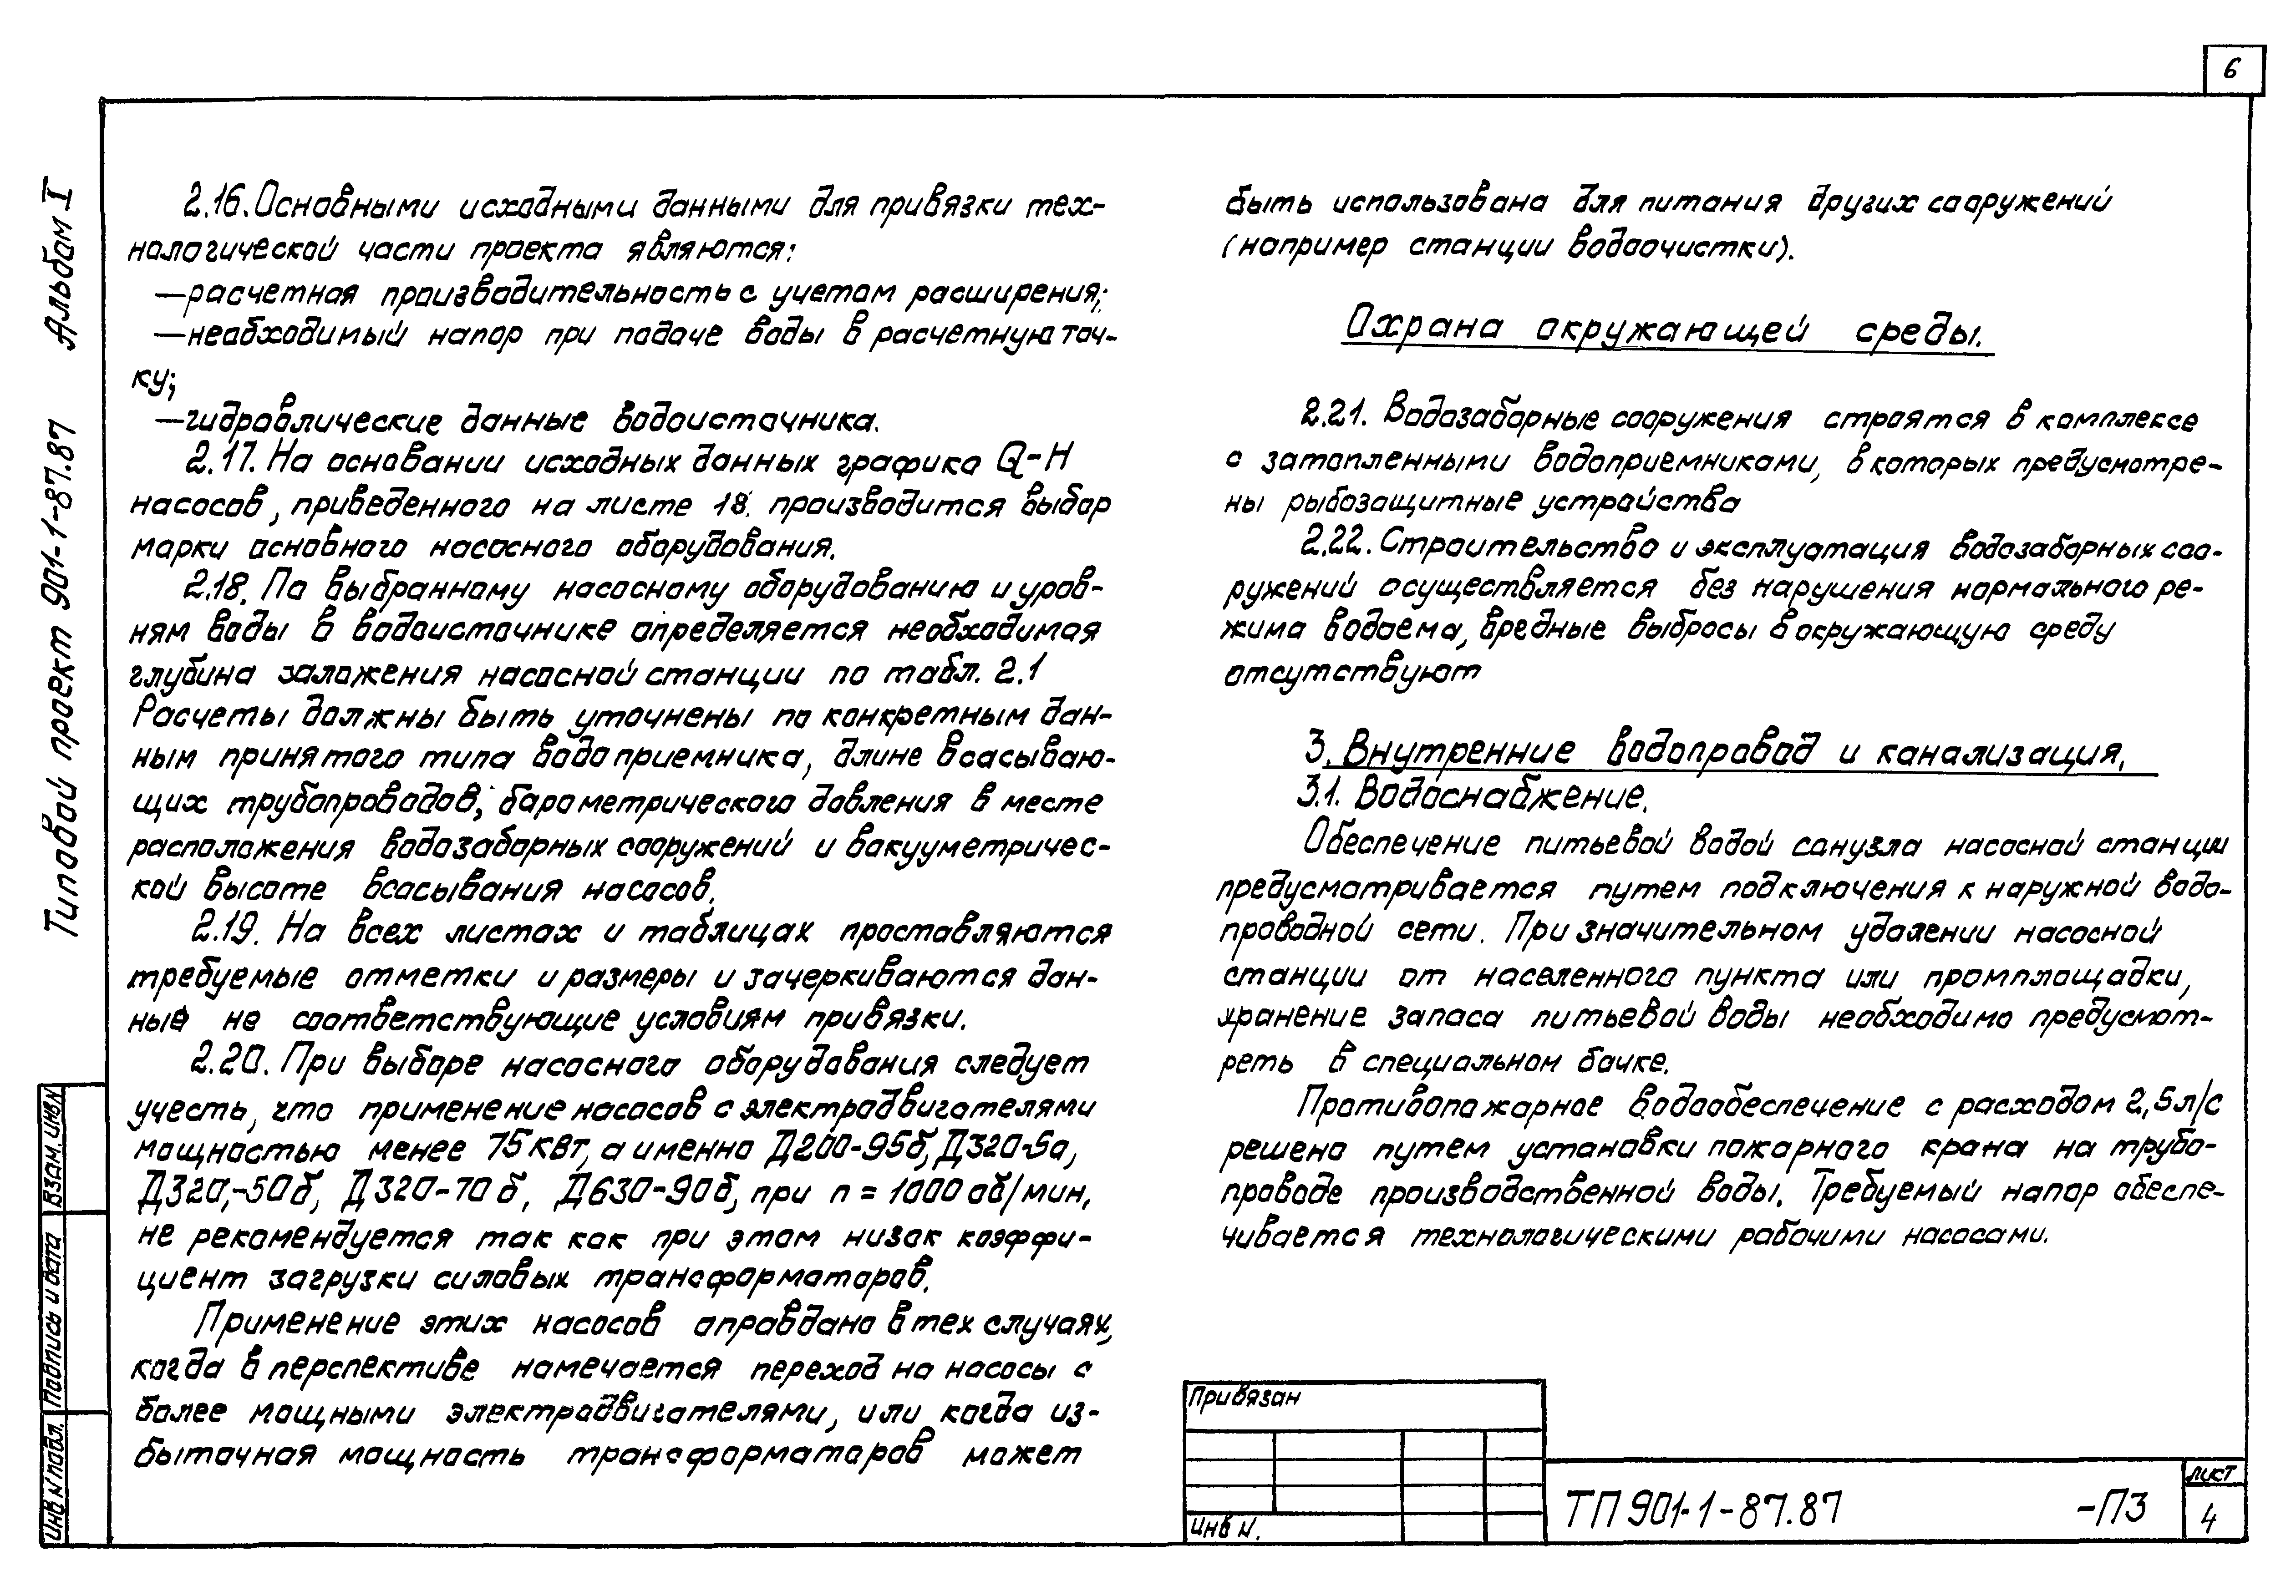 6
Типовой проект 901-1-87.87 Альбом I
2.16. Основными исходными данными для привязки тех-
нологической части проекта являются:
—расчетная производительность с учетом расширения;
—необходимый напор при подаче воды в расчетную точ-
ку;
—гидравлические данные водоисточника.
2.17. На основании исходных данных графика Q-H
насосов, приведенного на листе 18. производится выбор
марки основного насосного оборудования.
2.18. По выбранному насосному оборудованию и уров-
ням воды в водоисточнике определяется необходимая
глубина заложения насосной станции по табл. 2.1
Расчеты должны быть уточнены по конкретным дан-
ным принятого типа водоприемника, длине всасываю-
щих трубопроводов, барометрического давления в месте
расположения водозаборных сооружений и вакууметричес-
кой высоте всасывания насосов.
2.19. На всех листах и таблицах проставляются
требуемые отметки и размеры и зачеркиваются дан-
ные не соответствующие условиям привязки.
2.20. При выборе насосного оборудования следует
учесть, что применение насосов с электродвигателями
мощностью менее 75 квт, а именно Д200-95б, Д320-5а,
Д320,-50б, Д320-70б, Д630-90б, при n = 1000 об/мин,
не рекомендуется так как при этом низок коэффи-
циент загрузки силовых трансформаторов.
Применение этих насосов оправдано в тех случаях,
когда в перспективе намечается переход на насосы с
более мощными электродвигателями, или когда из-
быточная мощность трансформаторов может
быть использована для питания других сооружений
(например станции водоочистки).
Охрана окружающей среды.
2.21. Водозаборные сооружения строятся в комплексе
с затопленными водоприемниками, в которых предусмотре-
ны рыбозащитные устройства
2.22. Строительство и эксплуатация водозаборных соо-
ружений осуществляется без нарушения нормального ре-
жима водоема, вредные выбросы в окружающую среду
отсутствуют
3. Внутренние водопровод и канализация.
3.1. Водоснабжение.
Обеспечение питьевой водой санузла насосной станции
предусматривается путем подключения к наружной водо-
проводной сети. При значительном удалении насосной
станции от населенного пункта или промплощадки,
хранение запаса питьевой воды необходимо предусмот-
реть в специальном бачке.
Противопожарное водообеспечение с расходом 2,5 л/с
решено путем установки пожарного крана на трубо-
проводе производственной воды. Требуемый напор обеспе-
чивается технологическими рабочими насосами.
Инв N подл. Подпись и дата Взам. инв N
Привязан
Инв N.
ТП 901-1-87.87 -ПЗ
лист
4